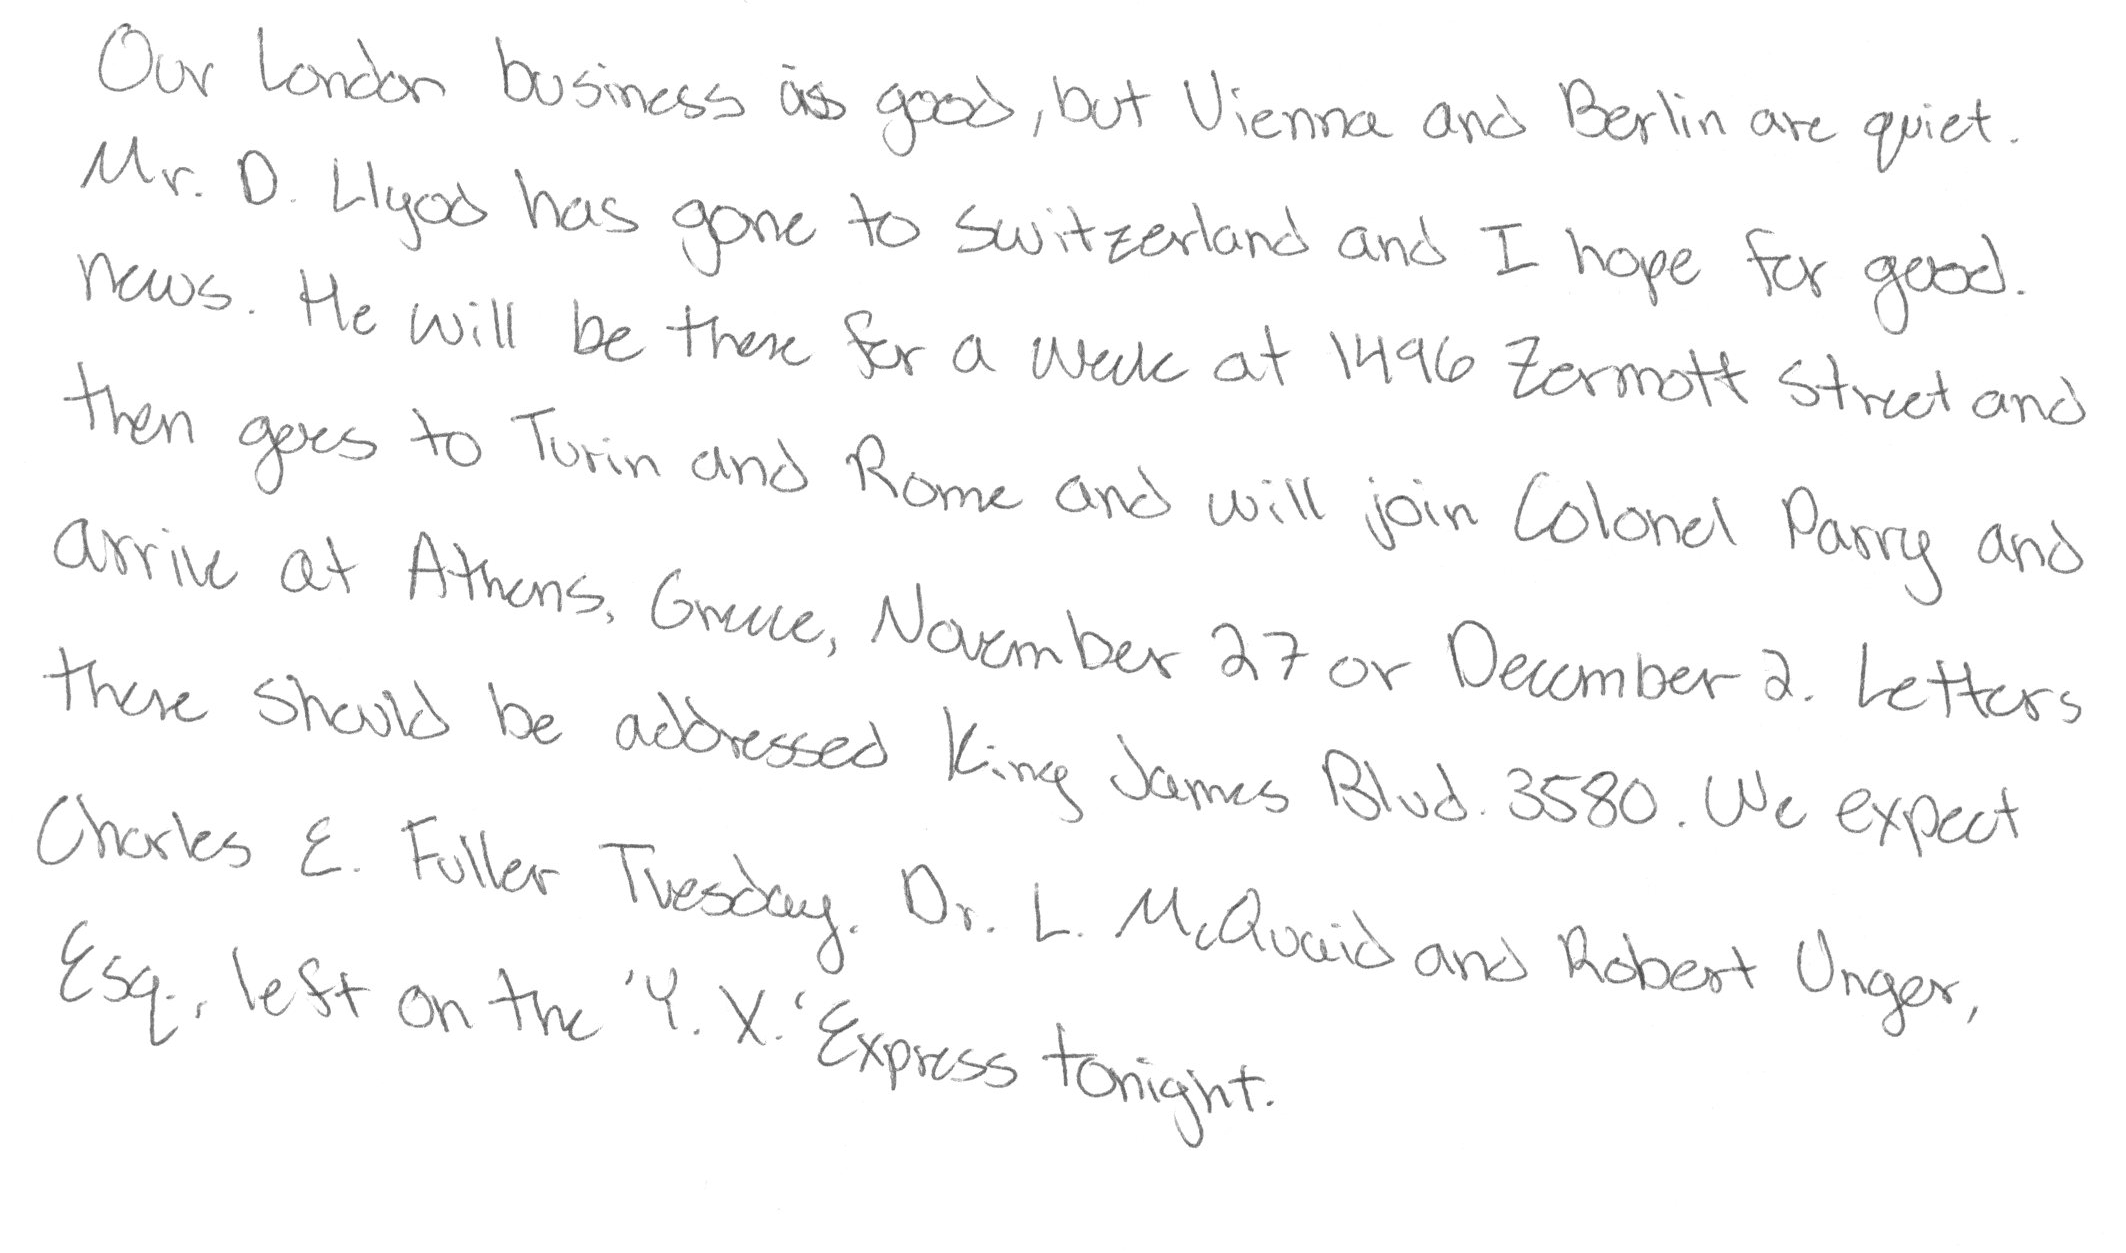 Our London business is good, but Vienna and Berlin are quiet.
Mr. D. Llyod has gone to Switzerland and I hope for good.
news. He will be there for a week at 1496 Zermott Street and
then goes to Turin and Rome and will join Colonel Parry and
arrive at Athens, Greece, November 27 or December 2. Letters
there should be addressed King James Blvd. 3580. We expect
Charles E. Fuller Tuesday. Dr. L. McQuaid and Robert Unger,
Esq., left on the 'Y. X.' Express tonight.